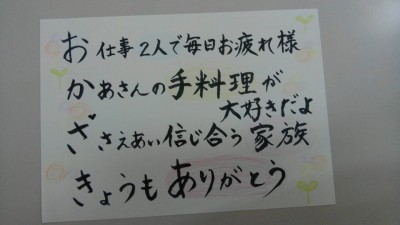 お仕事2人で毎日お疲れ様
かあさんの手料理が
大好きだよ
ざさえあい信じ合う家族
きょうもありがとう